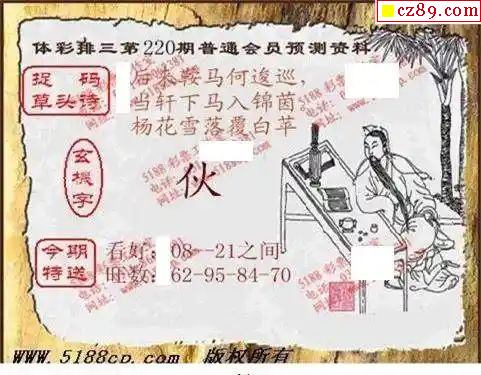 cz89.com
体彩排三第220期普通会员预测资料
捉码
草头诗
后来鞍马何逡巡,
当轩下马入锦茵
杨花雪落覆白苹
玄機字
伙
今期
特送
看好:08--21之间
旺数:62-95-84-70
www.5188cp.com 版权所有